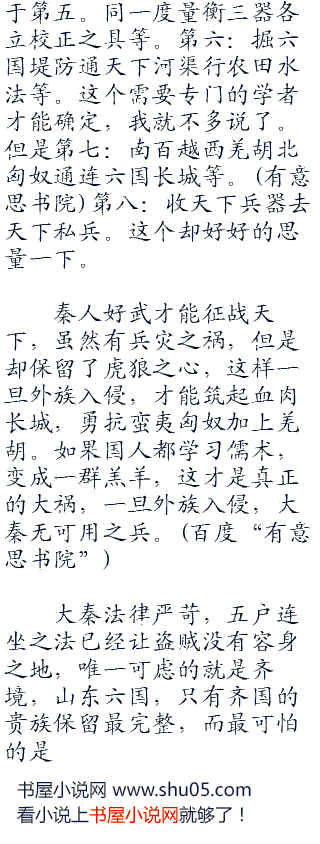 于第五。同一度量衡三器各
立校正之具等。第六：掘六
国堤防通天下河渠行农田水
法等。这个需要专门的学者
才能确定，我就不多说了。
但是第七：南百越西羌胡北
匈奴通连六国长城等。(有意
思书院)第八：收天下兵器去
天下私兵。这个却好好的思
量一下。
秦人好武才能征战天
下，虽然有兵灾之祸，但是
却保留了虎狼之心，这样一
旦外族入侵，才能筑起血肉
长城，勇抗蛮夷匈奴加上羌
胡。如果国人都学习儒术，
变成一群羔羊，这才是真正
的大祸，一旦外族入侵，大
秦无可用之兵。(百度“有意
思书院”)
大秦法律严苛，五户连
坐之法已经让盗贼没有容身
之地，唯一可虑的就是齐
境，山东六国，只有齐国的
贵族保留最完整，而最可怕
的是
书屋小说网 www.shu05.com
看小说上书屋小说网就够了！